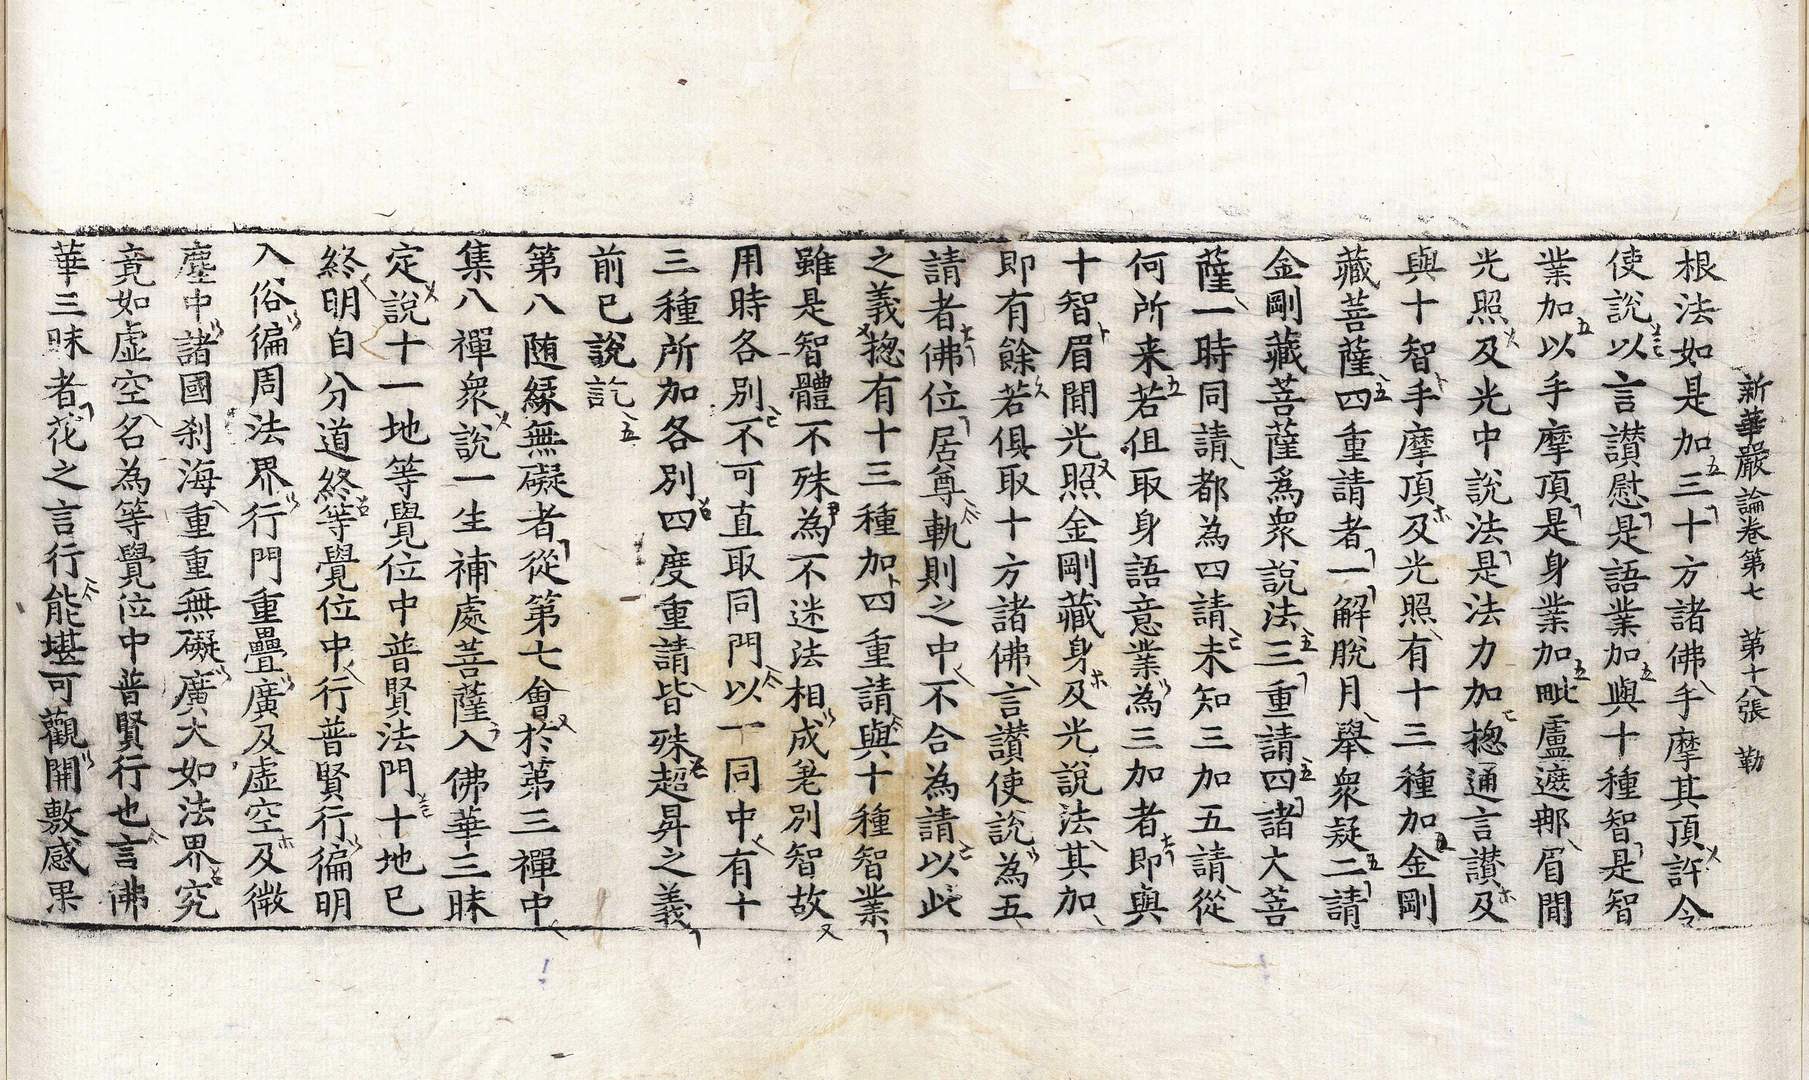 新華嚴論卷第七 第十八張 勒
根法如是加三十方諸佛手摩其頂許令
使說以言讃慰是語業加與十種智是智
業加以手摩頂是身業加毗盧遮那眉間
光照及光中說法是法力加摠通言讃及
與十智手摩頂及光照有十三種加金剛
藏菩薩四重請者一解脫月舉衆疑二請
金剛藏菩薩爲衆說法三重請四諸大菩
薩一時同請都為四請未知三加五請從
何所来若但取身語意業為三加者即與
十智眉間光照金剛藏身及光說法其加
即有餘若俱取十方諸佛言讃使說為五
請者佛位居尊軌則之中不合為請以此
之義摠有十三種加四重請與十種智業
雖是智體不殊為不迷法相成差別智故
用時各別不可直取同門以一同中有十
三種所加各別四度重請皆殊超昇之義
前已說訖
第八随緣無礙者從第七會於第三禪中
集八禪衆說一生補處菩薩入佛華三昧
定說十一地等覺位中普賢法門十地已
終明自分道終等覺位中行普賢行徧明
入俗徧周法界行門重疊廣及虛空及微
塵中諸國刹海重重無礙廣大如法界究
竟如虛空名為等覺位中普賢行也言佛
華三昧者花之言行能堪可觀開敷感果